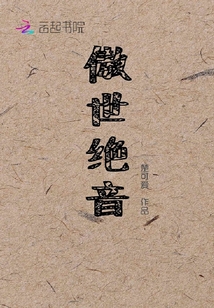 云起书院
傲世绝音
作品